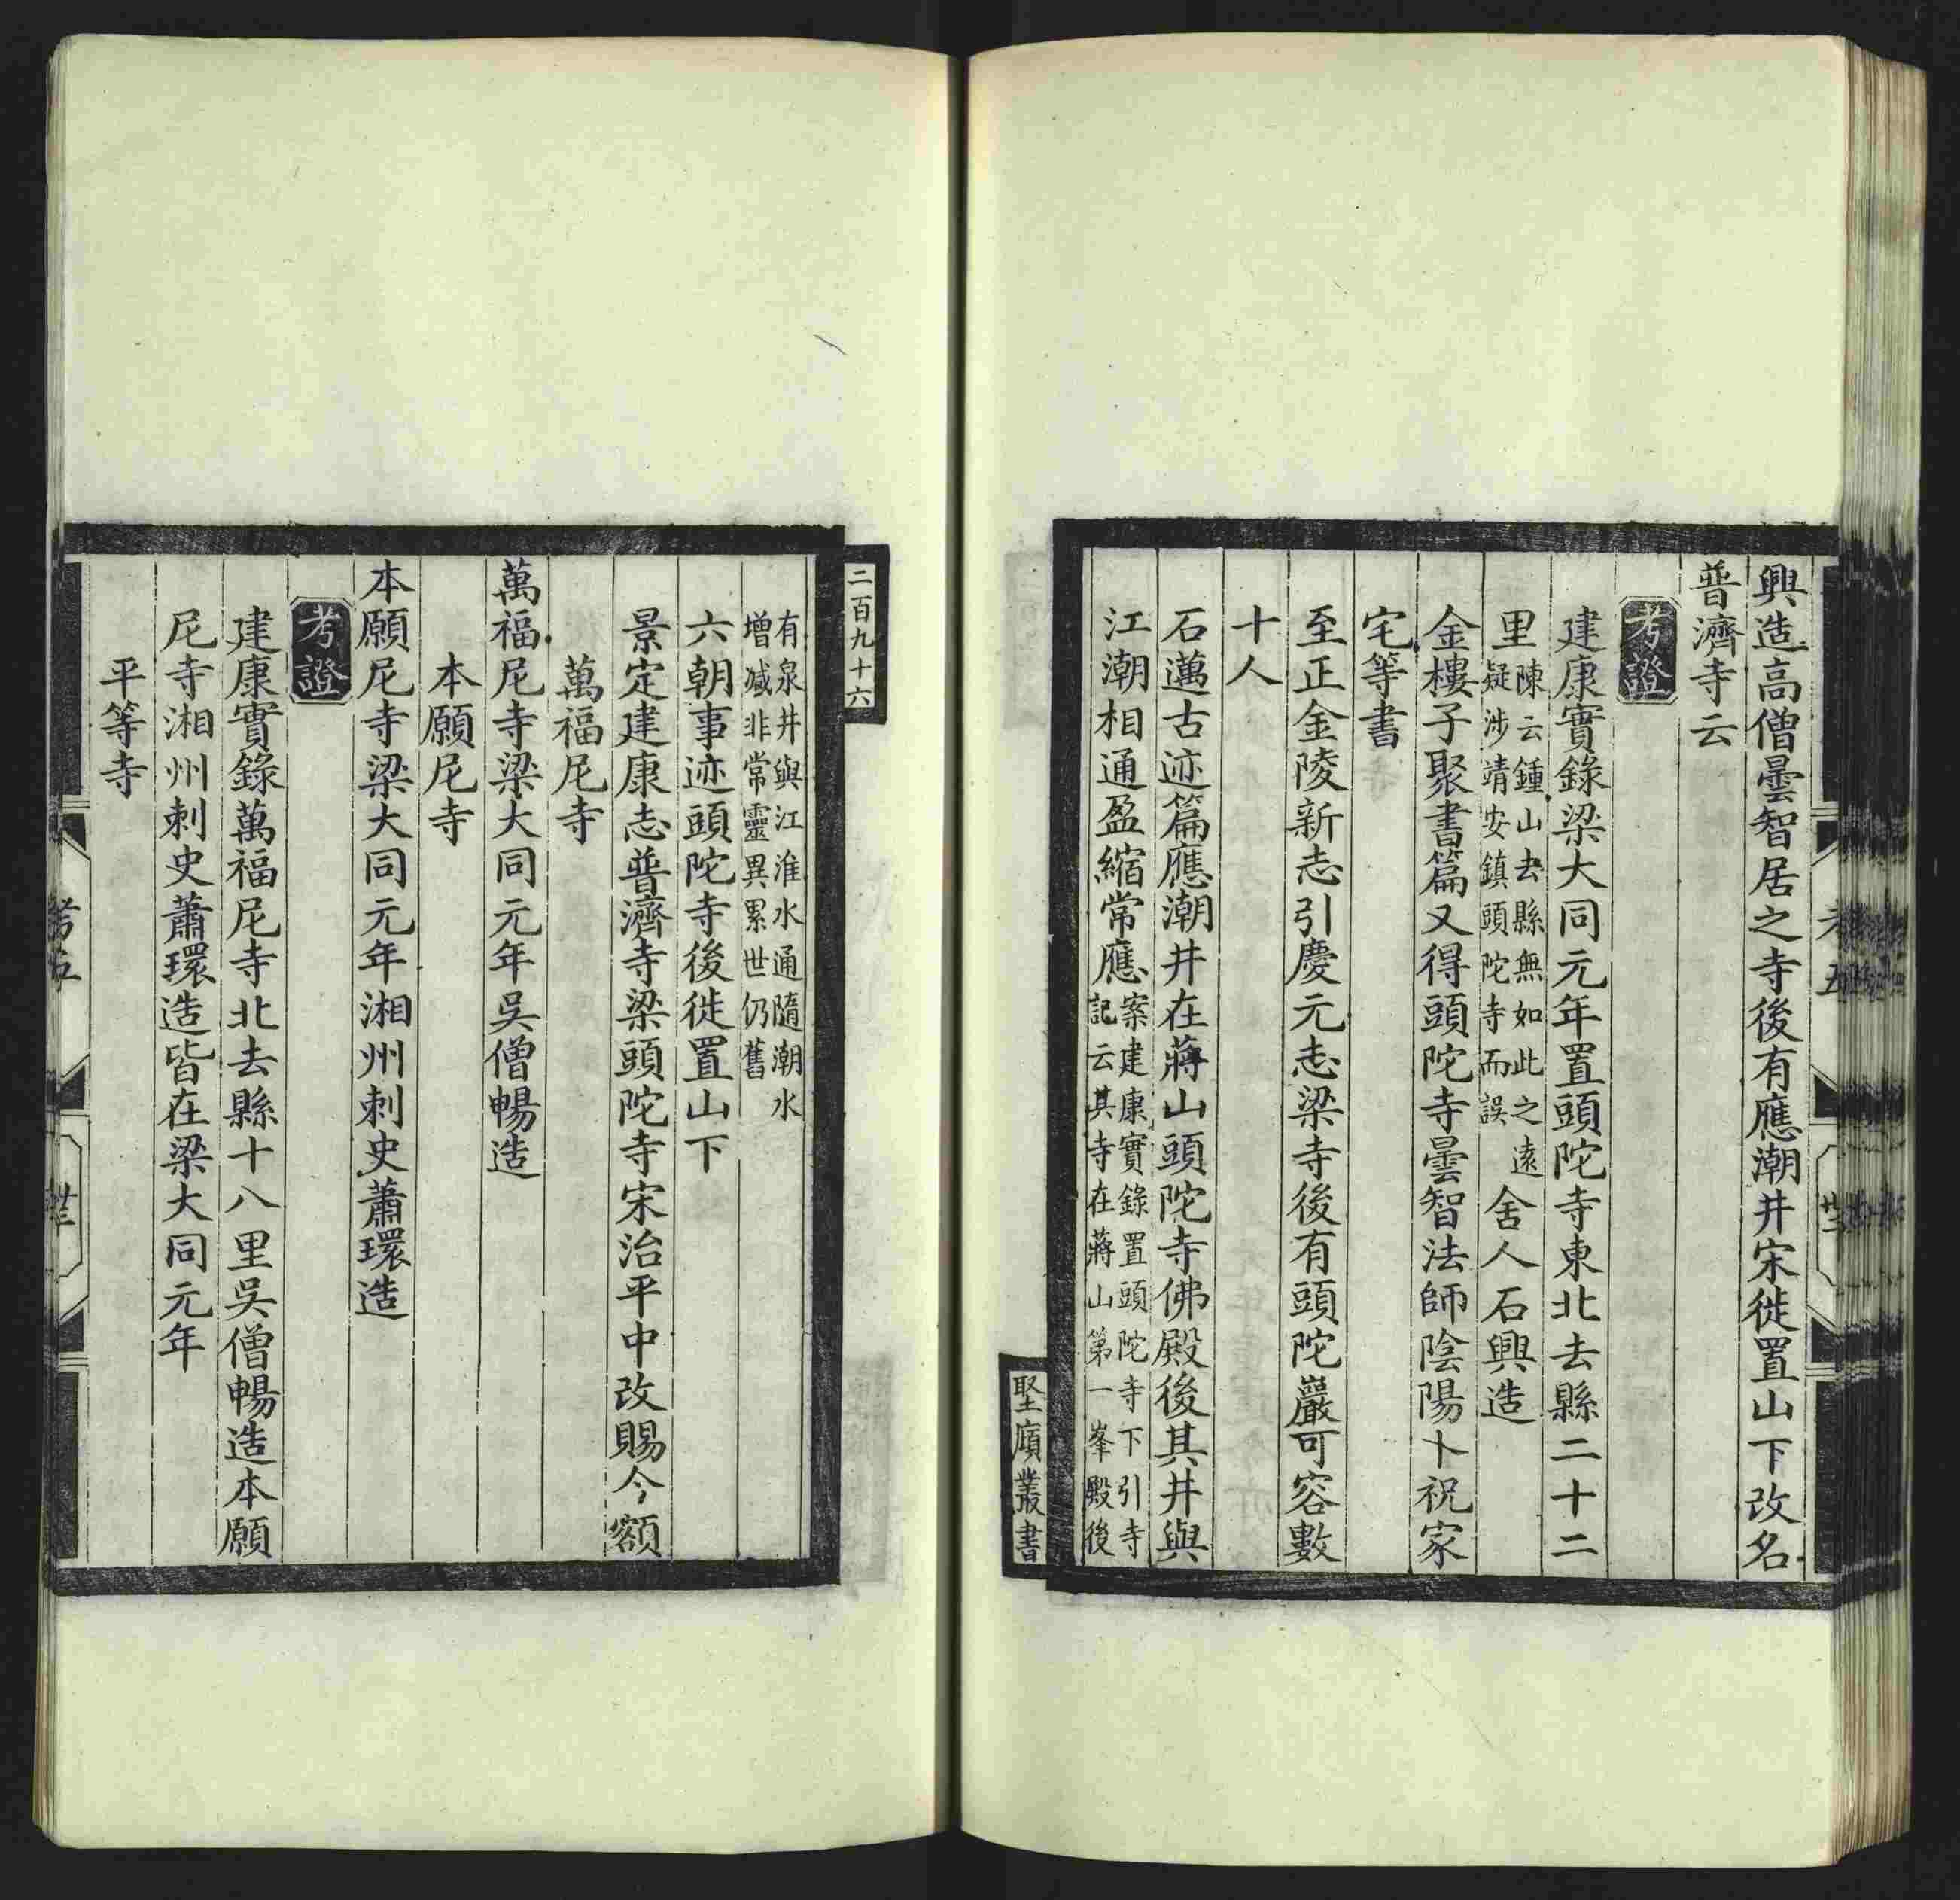 興造高僧曇智居之寺後有應潮井宋徙置山下改名
普濟寺云
考證
建康實錄梁大同元年置頭陀寺東北去縣二十二
里陳云鍾山去縣無如此之遠疑涉靖安鎮頭陀寺而誤舍人石興造
金樓子聚書篇又得頭陀寺曇智法師陰陽卜祝冢
宅等書
至正金陵新志引慶元志梁寺後有頭陀巖可容數
十人
石邁古迹篇應潮井在蔣山頭陀寺佛殿後其井與
江潮相通盈縮常應案建康實錄置頭陀寺下引寺記云其寺在蔣山第一峯殿後
堅頋叢書
二百九十六
有泉井與江淮水通隨潮水增減非常靈異累世仍舊
六朝事迹頭陀寺後徙置山下
景定建康志普濟寺梁頭陀寺宋治平中改賜今額
萬福尼寺
萬福尼寺梁大同元年吳僧暢造
本願尼寺
本願尼寺梁大同元年湘州刺史蕭環造
考證
建康實錄萬福尼寺北去縣十八里吳僧暢造本願
尼寺湘州刺史蕭環造皆在梁大同元年
平等寺